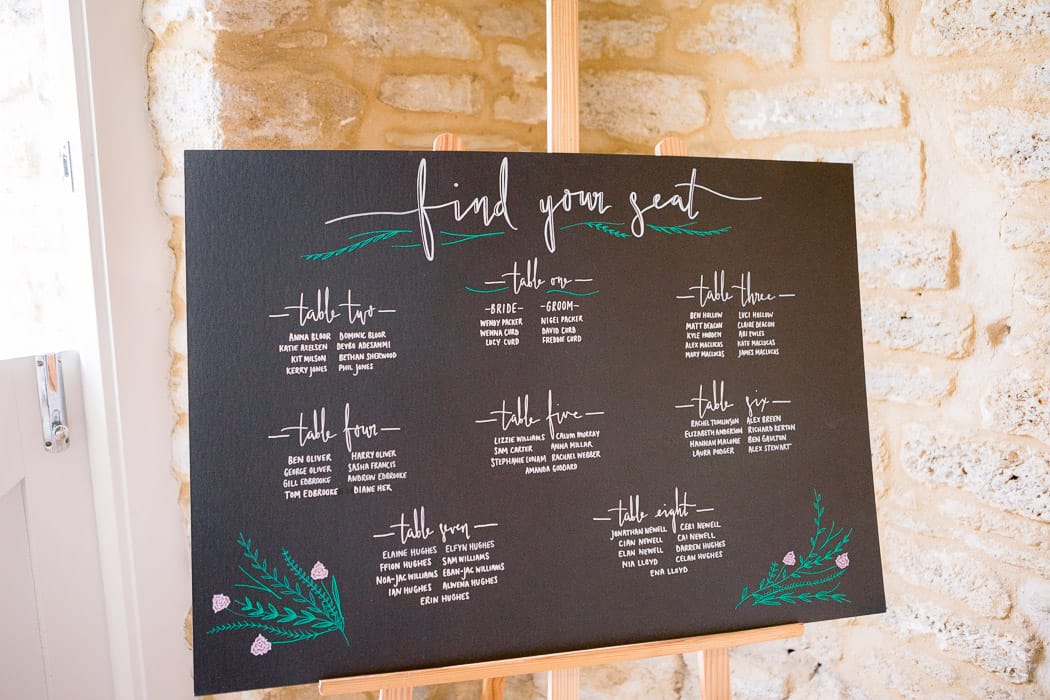 find your seat
table one
-BRIDE- -GROOM-
WENDY PACKER NIGEL PACKER
WENNA CURD DAVID CURD
LUCY CURD FREDDIE CURD
table two
ANNA BLOOR DOMINIC BLOOR
KATIE AXELSEN DEYBO ADESANMI
KIT MILSON BETHAN SHERWOOD
KERRY JONES PHIL JONES
table three
BEN HOLLOW LUCI HOLLOW
MATT DEACON CLAIRE DEACON
KYLE HOBDEN ABI EWLES
ALEX MACLUCAS KATE MACLUCAS
MARY MACLUCAS JAMES MACLUCAS
table four
BEN OLIVER HARRY OLIVER
GEORGE OLIVER SASHA FRANCIS
GILL EDBROOKE ANDREW EDBROOKE
TOM EDBROOKE DIANE HER
table five
LIZZIE WILLIAMS CALUM MURRAY
SAM CARTER ANNA MILLAR
STEPHANIE LONAM RACHAEL WEBBER
AMANDA GODDARD
table six
RACHEL TOMLINSON ALEX BREEN
ELIZABETH ANDERSON RICHARD KERTON
HANNAH MALONE BEN GAULTON
LAURA PUDGER ALEX STEWART
table seven
ELAINE HUGHES ELFYN HUGHES
FFION HUGHES SAM WILLIAMS
NOA-JAC WILLIAMS EBAN-JAC WILLIAMS
IAN HUGHES ALWENA HUGHES
ERIN HUGHES
table eight
JONATHAN NEWELL CERI NEWELL
CIAN NEWELL CAI NEWELL
ELAN NEWELL DARREN HUGHES
NIA LLOYD CELAN HUGHES
ENA LLOYD